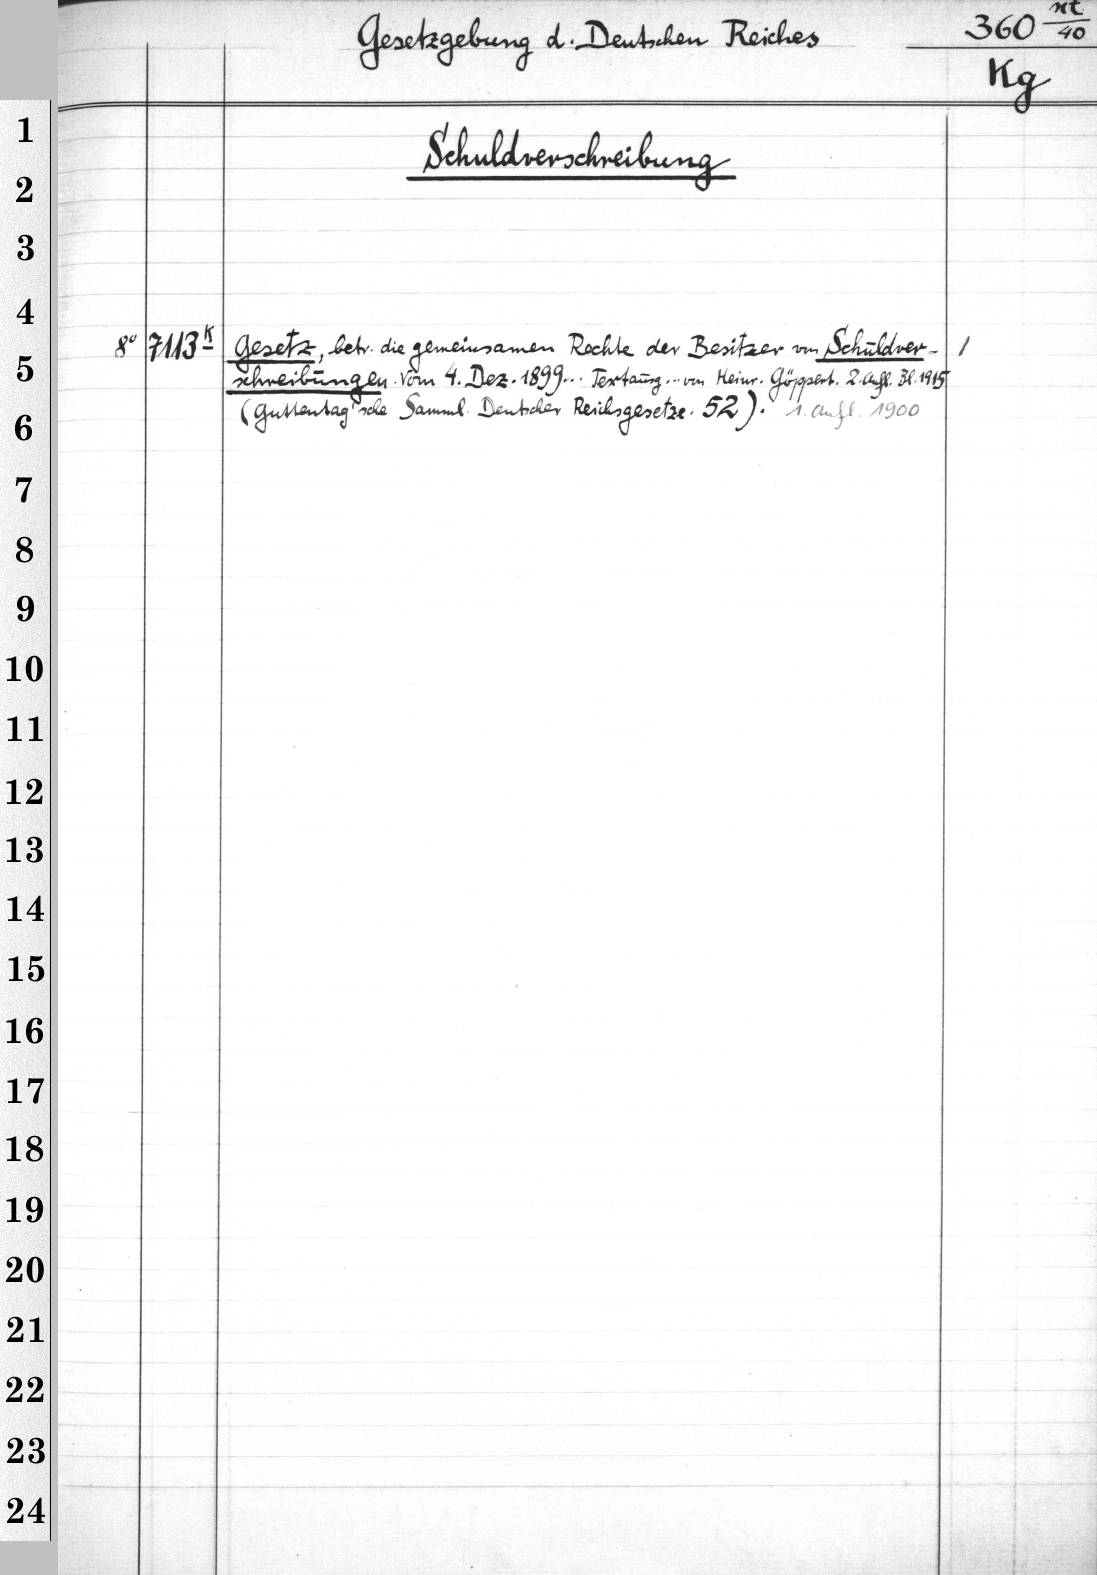 Gesetzgebung d. Deutschen Reiches
360 nt/40
Kg
Schuldverschreibung
8° 7113 K Gesetz, betr. die gemeinsamen Rechte der Besitzer von Schuldver- 1
schreibungen. Vom 4. Dez. 1899... Textausg. .. von Heinr. Göppert. 2. Aufl. Bl. 1915
(Guttentag'sche Samml. Deutscher Reichsgesetze. 52). 1. Aufl. 1900
1
2
3
4
5
6
7
8
9
10
11
12
13
14
15
16
17
18
19
20
21
22
23
24